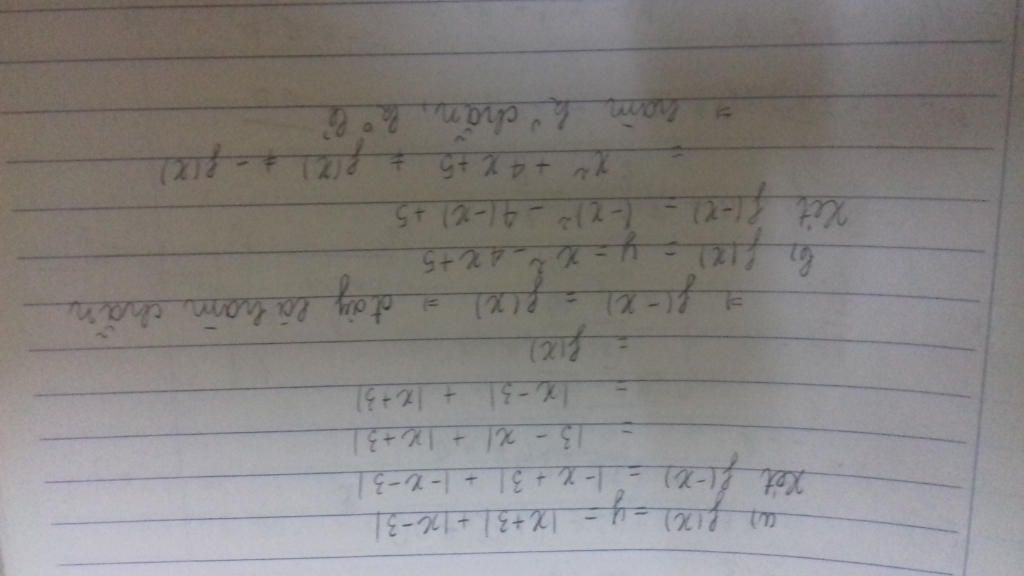 a) f(x) = y = |x+3| + |x-3|
Xét f(-x) = |-x+3| + |-x-3|
= |3-x| + |x+3|
= |x-3| + |x+3|
= f(x)
⇒ f(-x) = f(x) ⇒ đây là hàm chẵn
b) f(x) = y = x² - 4x+5
Xét f(-x) = (-x)² - 4(-x) +5
= x² + 4x+5 ≠ f(x) ≠ -f(x)
⇒ hàm k° chẵn, k° lẻ